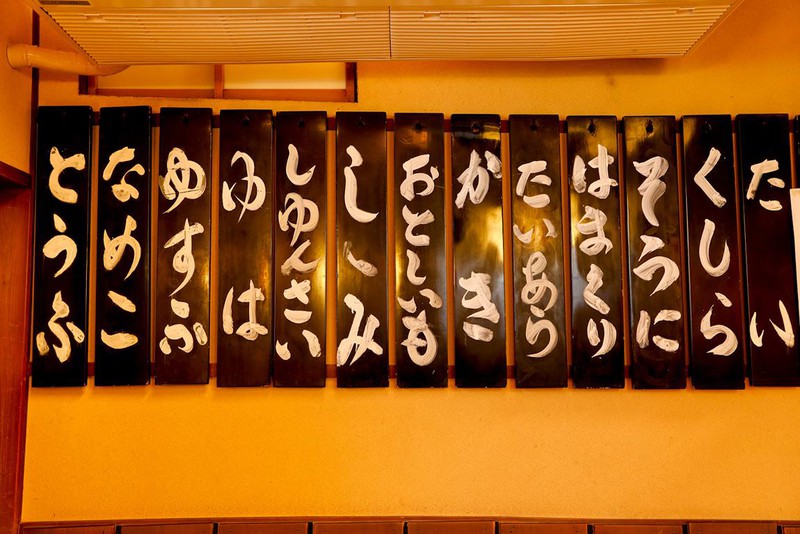 たい
くしら
そうに
はまくり
たいあら
かき
おとしいも
しゝみ
しゆんさい
ゆは
めすふ
なめこ
とうふ